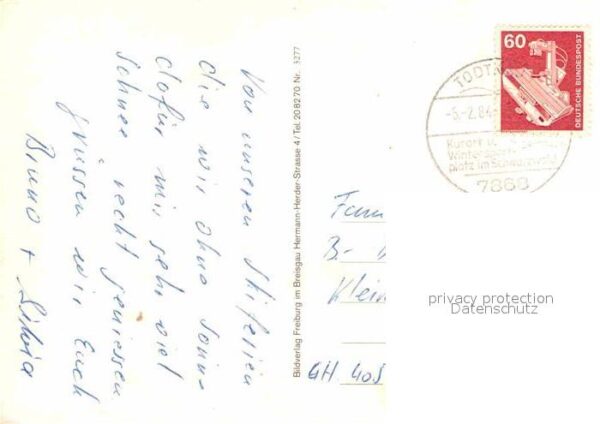 Von unseren Skiferien
die wir ohne Sonne
dafür mit sehr viel
Schnee recht geniessen
grüssen wir Euch
Bruno + Silvia
Bildverlag Freiburg im Breisgau Hermann-Herder-Strasse 4 / Tel. 208270 Nr. 3277
60
DEUTSCHE BUNDESPOST
TODTN
-5.-2.84
Kurort u.
Wintersport-
platz im Schwarzwald
7868
Fam
B-
Klein
CH 405
privacy protection
Datenschutz